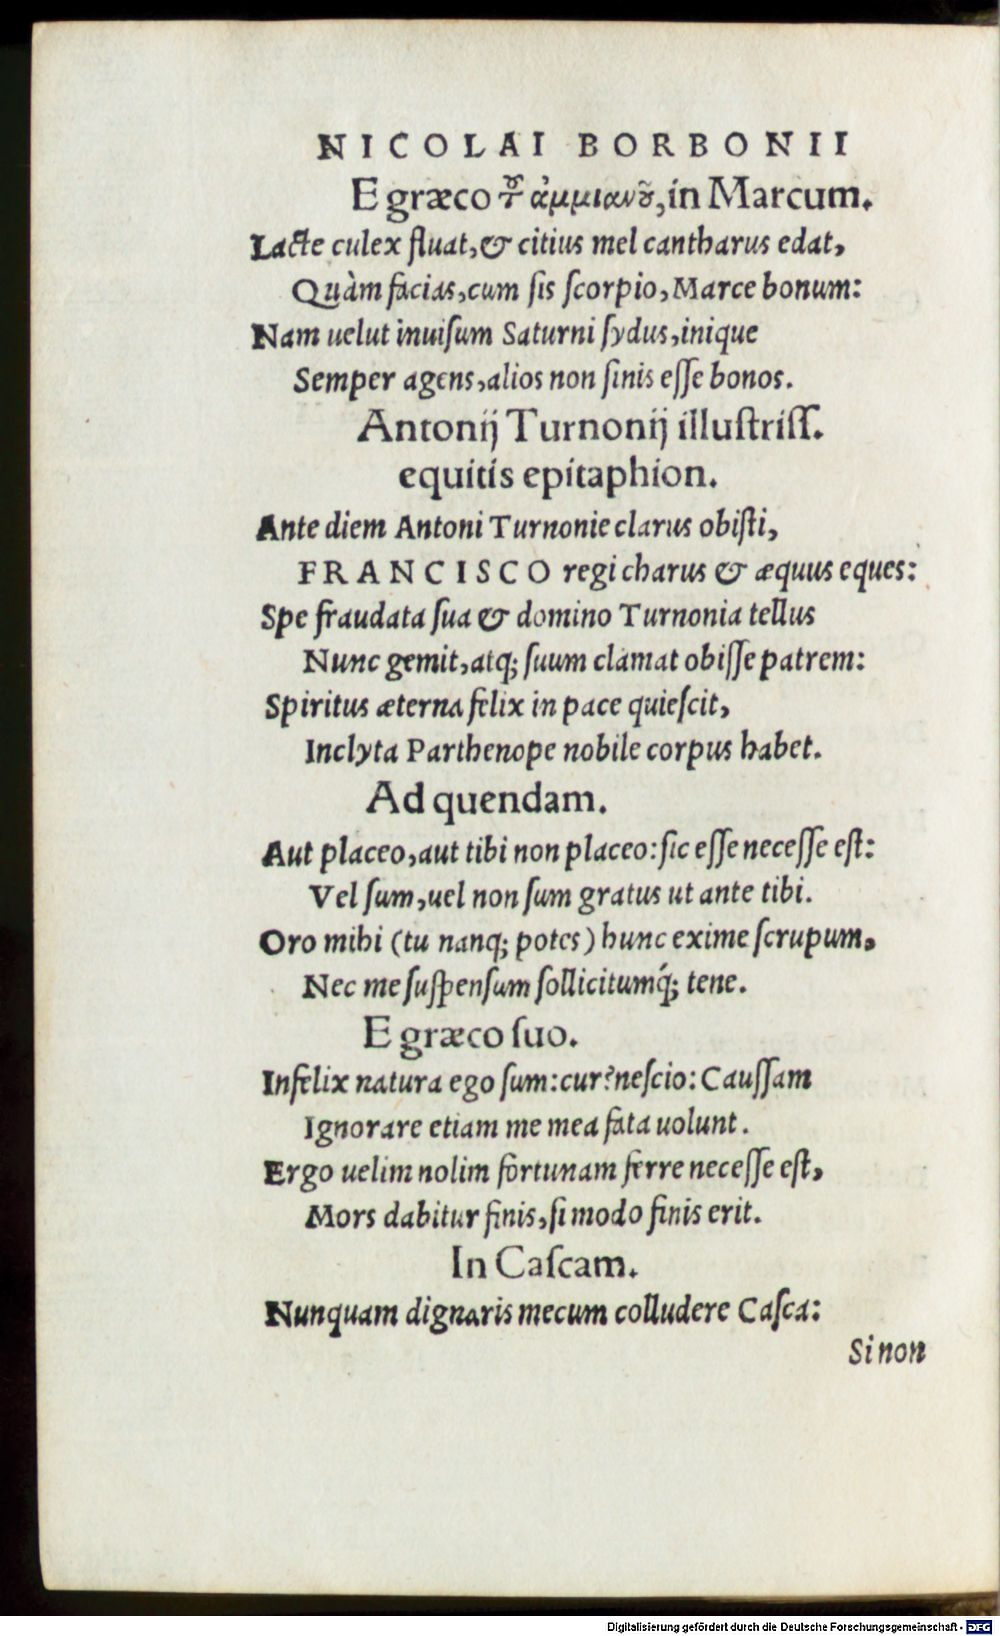 NICOLAI BORBONII
E græco τȣ̃ ἀμμιανȣ̃, in Marcum.
Lacte culex fluat, & citius mel cantharus edat,
Quàm facias, cum sis scorpio, Marce bonum:
Nam uelut inuisum Saturni sydus, inique
Semper agens, alios non sinis esse bonos.
Antonij Turnonij illustriss.
equitis epitaphion.
Ante diem Antoni Turnonie clarus obisti,
FRANCISCO regi charus & æquus eques:
Spe fraudata sua & domino Turnonia tellus
Nunc gemit, atq; suum clamat obisse patrem:
Spiritus æterna felix in pace quiescit,
Inclyta Parthenope nobile corpus habet.
Ad quendam.
Aut placeo, aut tibi non placeo: sic esse necesse est:
Vel sum, uel non sum gratus ut ante tibi.
Oro mihi (tu nanq; potes) hunc exime scrupum,
Nec me suspensum sollicitumq́; tene.
E græco suo.
Infelix natura ego sum: cur? nescio: Caussam
Ignorare etiam me mea fata uolunt.
Ergo uelim nolim fortunam ferre necesse est,
Mors dabitur finis, si modo finis erit.
In Cascam.
Nunquam dignaris mecum colludere Casca:
Si non
Digitalisierung gefördert durch die Deutsche Forschungsgemeinschaft - DFG